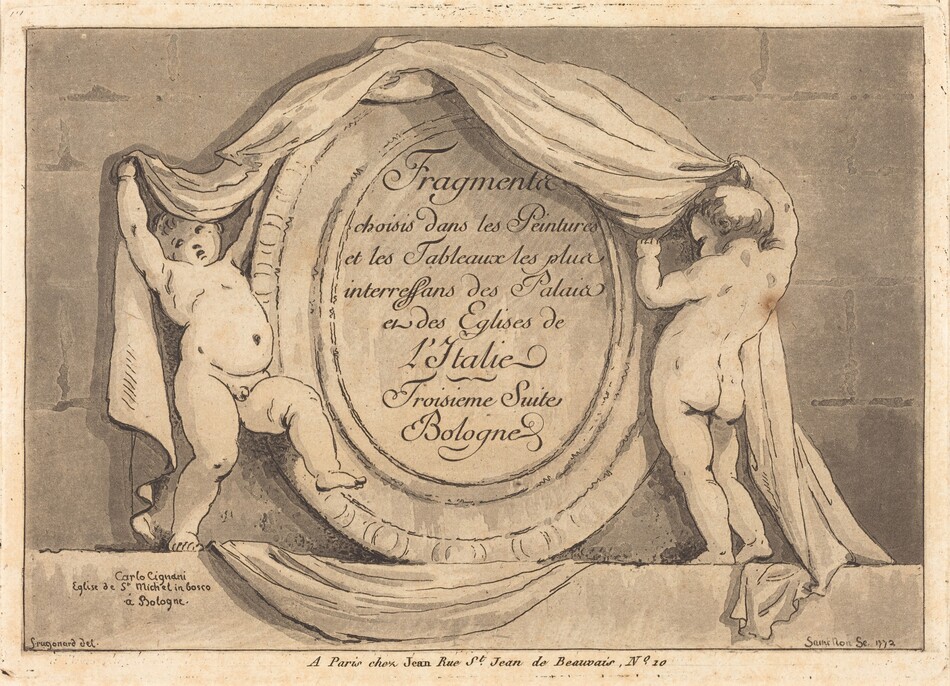 Fragments
choisis dans les Peintures
et les Tableaux les plus
interressans des Palais
et des Eglises de
L'Italie
Troisieme Suite
Bologne
Carlo Cignani
Eglise de St. Michel in bosco
à Bologne.
fragonard del.
Saint Non Sc. 1772
A Paris chez Jean Rue St. Jean de Beauvais, No. 10